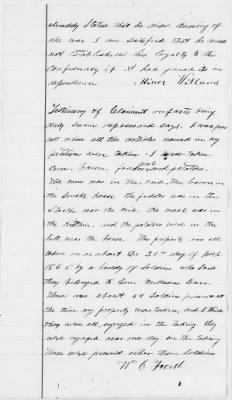 already stated that he nide during of
the war I am satisfied that he was
not established his loyalty to the
Confederacy if I has gained its an
Hiner Wilcum
Testimony of Claimant on facts being
duly sworn deposes and says. I was pres
ent when all the articles named in my
petition were taken. I were taken
Corn bacon fodder meal and potatoes.
The corn was in the crib. The bacon in
the smoke house the fodder was in the
Stack near the crib. The meal was in
the kitchen, and the potatoes were in the
hill near the house. The property was all
taken on or about the 25th day of
1865 by a body of Soldiers who said
they belonged to Genl army
There was about 50 Soldiers present at
the time my property was taken, and I think
they were all engaged in the taking they
were engaged near one day in the taking
There were present other than Soldiers
Wm C